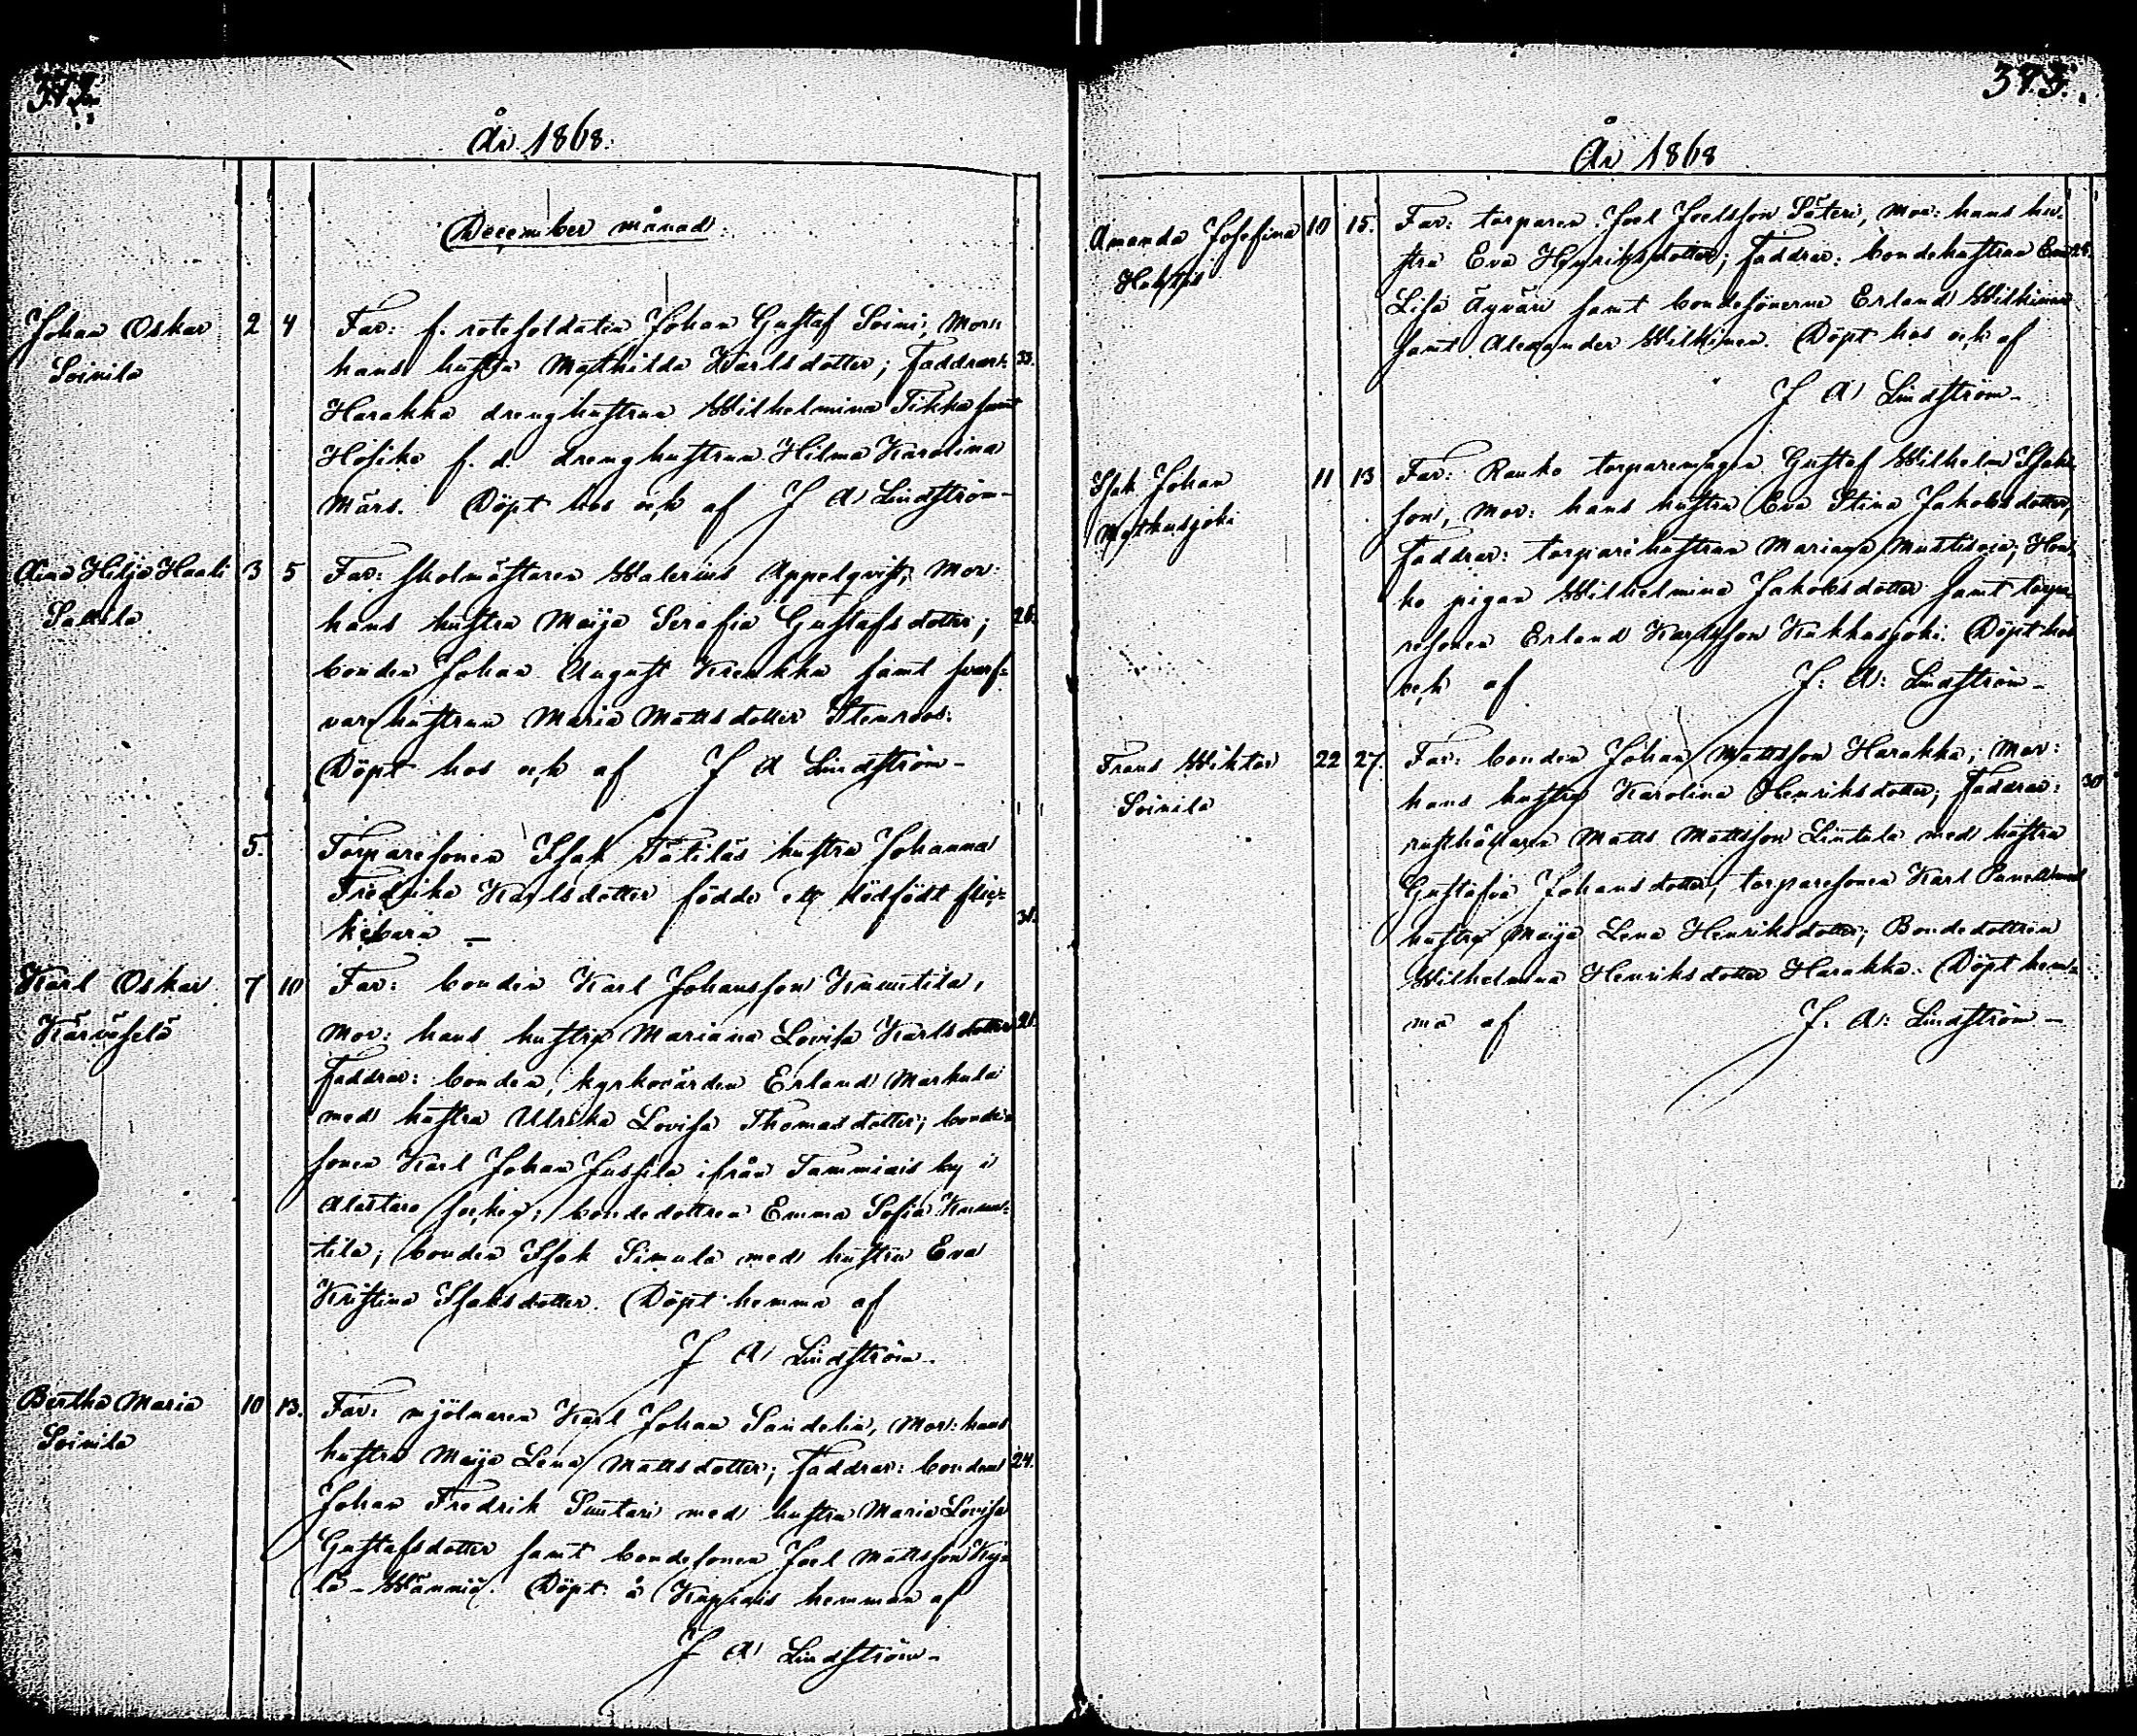 År 1868.
December månad.
Johan Oskar 2 4 Far: f. rotesoldaten Johan Gustaf Soini, Mor:
Soinila hans hustru Mathilda Karlsdotter; Faddrar: 33.
Harakka drenghustrun Wilhelmina Tikka samt
Hösike f. d. drenghustrun Hilma Karolina
Märs. Döpt hos och af J A Lindström-
Aina Hilja Haali 3 5 Far: skolmästaren Walerius Appelqvist, Mor:
Sallila hans hustru Maija Serafia Gustafsdotter; 26.
bonden Johan August Krekka samt svarf-
varhustrun Maria Mattsdotter Stenroos.
Döpt hos och af J A Lindström-
5. Torparesonen Isak Tätiläs hustru Johanna
Fredrika Karlsdotter födde ett dödfödt flic-
kebarn — 31.
Karl Oskar 7 10 Far: bonden Karl Johansson Knuutila,
Kärväselä Mor: hans hustru Mariana Lovisa Karlsdotter 21.
Faddrar: bonden, kyrkovärden Erland Markula
med hustru Ulrika Lovisa Thomasdotter; bonde-
sonen Karl Johan Jussila ifrån Tammiais by i
Alastaro socken; bondedottren Emma Sofia Knuu-
tila; bonden Isak Simula med hustru Eva
Kristina Isaksdotter. Döpt hemma af
J A Lindström.
Bertha Maria 10 13. Far: mjölnaren Karl Johan Sandelin, Mor: hans
Soinila hustru Maija Lena Mattsdotter; Faddrar: bonden 24.
Johan Fredrik Suutari med hustru Maria Lovisa
Gustafsdotter samt bondesonen Joel Mattsson Ky-
lä-Wännilä. Döpt å hemman af
J A Lindström-
375.
År 1868
Amanda Josefina 10 15. Far: torparen Joel Joelsson Säteri, Mor: hans hu-
stru Eva Henriksdotter; Faddrar: bondehustrun Eva 25.
Lisa Äyväri samt bondesönerne Erland Wilkinen
samt Alexander Wilkinen. Döpt hos och af
J A Lindström-
Isak Johan 11 13 Far: Ranko torparemågen Gustaf Wilhelm Isaks-
Matkusjoki son, Mor: hans hustru Eva Stina Jakobsdotter,
Faddrar: torparehustrun Mariana Mustisoja, Hon-
ko pigan Wilhelmina Jakobsdotter samt torpa-
resonen Erland Karlsson Kukkasjoki. Döpt hos
och af J: A: Lindström-
Frans Wiktor 22 27. Far: bonden Johan Mattsson Harakka; Mor:
Soinila hans hustru Karolina Henriksdotter; Faddrar: 30
rusthållaren Matts Mattsson Liuttula med hustru
Gustafva Johansdotter, torparesonen Karl med
hustru Maija Lena Henriksdotter; Bondedottren
Wilhelmina Henriksdotter Harakka. Döpt hem-
ma af J: A: Lindström-